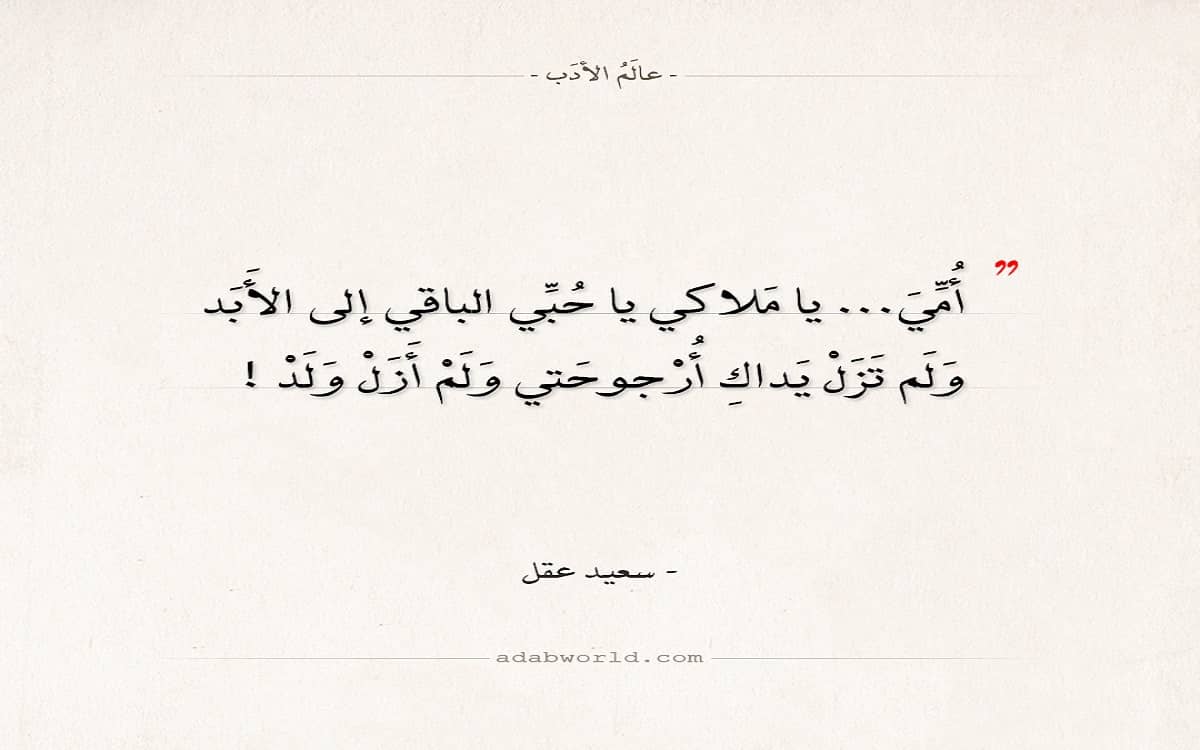 - عالَمُ الأدَب -
”
أُمِّيَ... يا مَلاكي يا حُبِّي الباقي إلى الأَبَد
وَلَم تَزَلْ يَداكِ أُرْجوحَتي وَلَمْ أَزَلْ وَلَدْ !
- سعيد عقل
adabworld.com